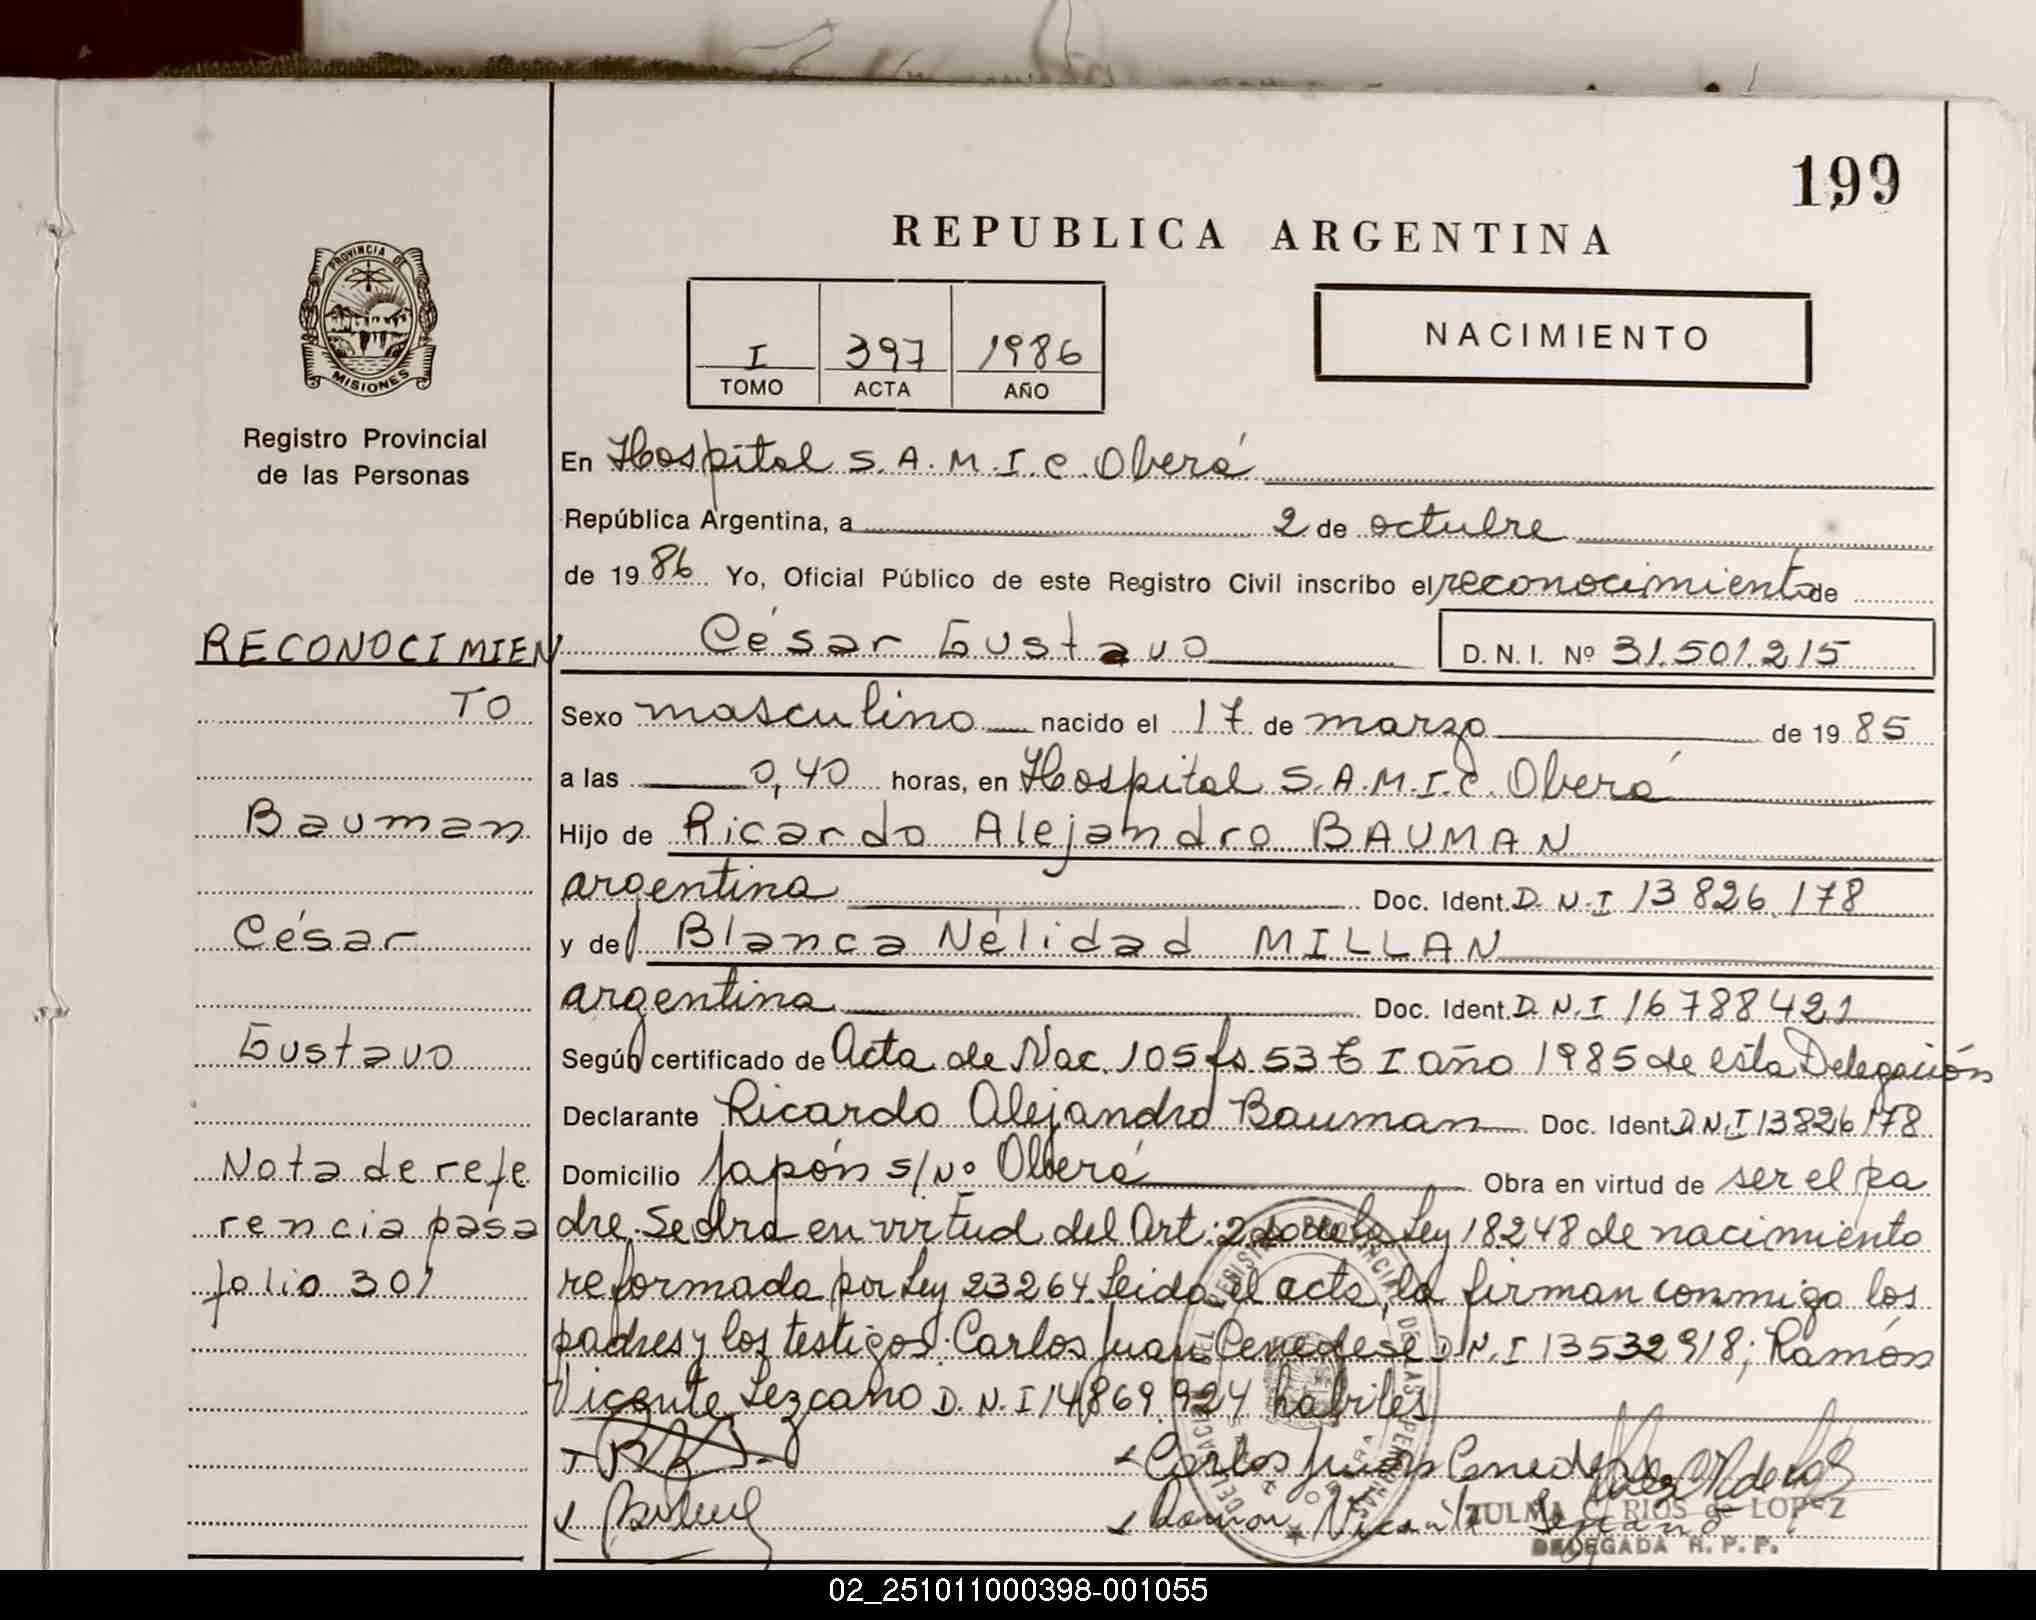 199
REPUBLICA ARGENTINA
PROVINCIA DE
MISIONES
I 397 1986
TOMO ACTA AÑO
NACIMIENTO
Registro Provincial
de las Personas
En Hospital S.A.M.I.C. Oberá
República Argentina, a 2 de octubre
de 1986 Yo, Oficial Público de este Registro Civil inscribo el reconocimiento de
César Gustavo D.N.I. Nº 31.501.215
Sexo masculino nacido el 17 de marzo de 1985
a las 0,40 horas, en Hospital S.A.M.I.C. Oberá
Hijo de Ricardo Alejandro BAUMAN
argentina Doc. Ident. D.N.I 13 826.178
y de Blanca Nélidad MILLAN
argentina Doc. Ident. D.N.I 16788421
Según certificado de Acta de Nac. 105 fs 53 T I año 1985 de esta Delegación
Declarante Ricardo Alejandro Bauman Doc. Ident. D.N.I 13826178
Domicilio Japón s/Nº Oberá Obra en virtud de ser el pa
dre. Se labra en virtud del Art: 2do de la Ley 18248 de nacimiento
reformada por Ley 23264. Leida el acta, la firman conmigo los
padres y los testigos: Carlos Juan Cenedese D.N.I 13532918; Ramón
Vicente Lezcano D.N.I 14869.924 habiles
Carlos Juan Cenedese
Ramon Vicente Lezcano
TULMA C. RIOS de LOPEZ
DELEGADA R.P.P.
RECONOCIMIEN
TO
Bauman
César
Gustavo
Nota de refe
rencia pasa
folio 301
02_251011000398-001055